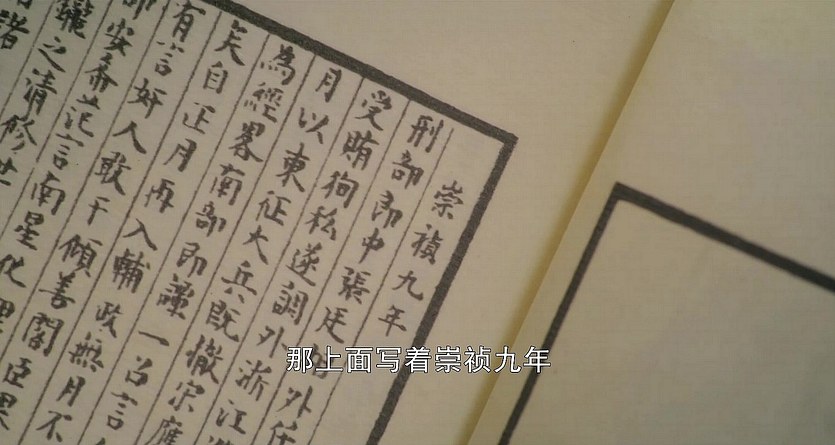 崇禎九年
刑部郎中張廷外任
受賄徇私遂調外浙江
月以東征大兵既撤宗應
為經畧南部即謹一召言
矣自正月再入輔政無月不
有言奸人敢干傾善閣臣果
部安言南星化理
之清修世
諸
那上面写着崇祯九年